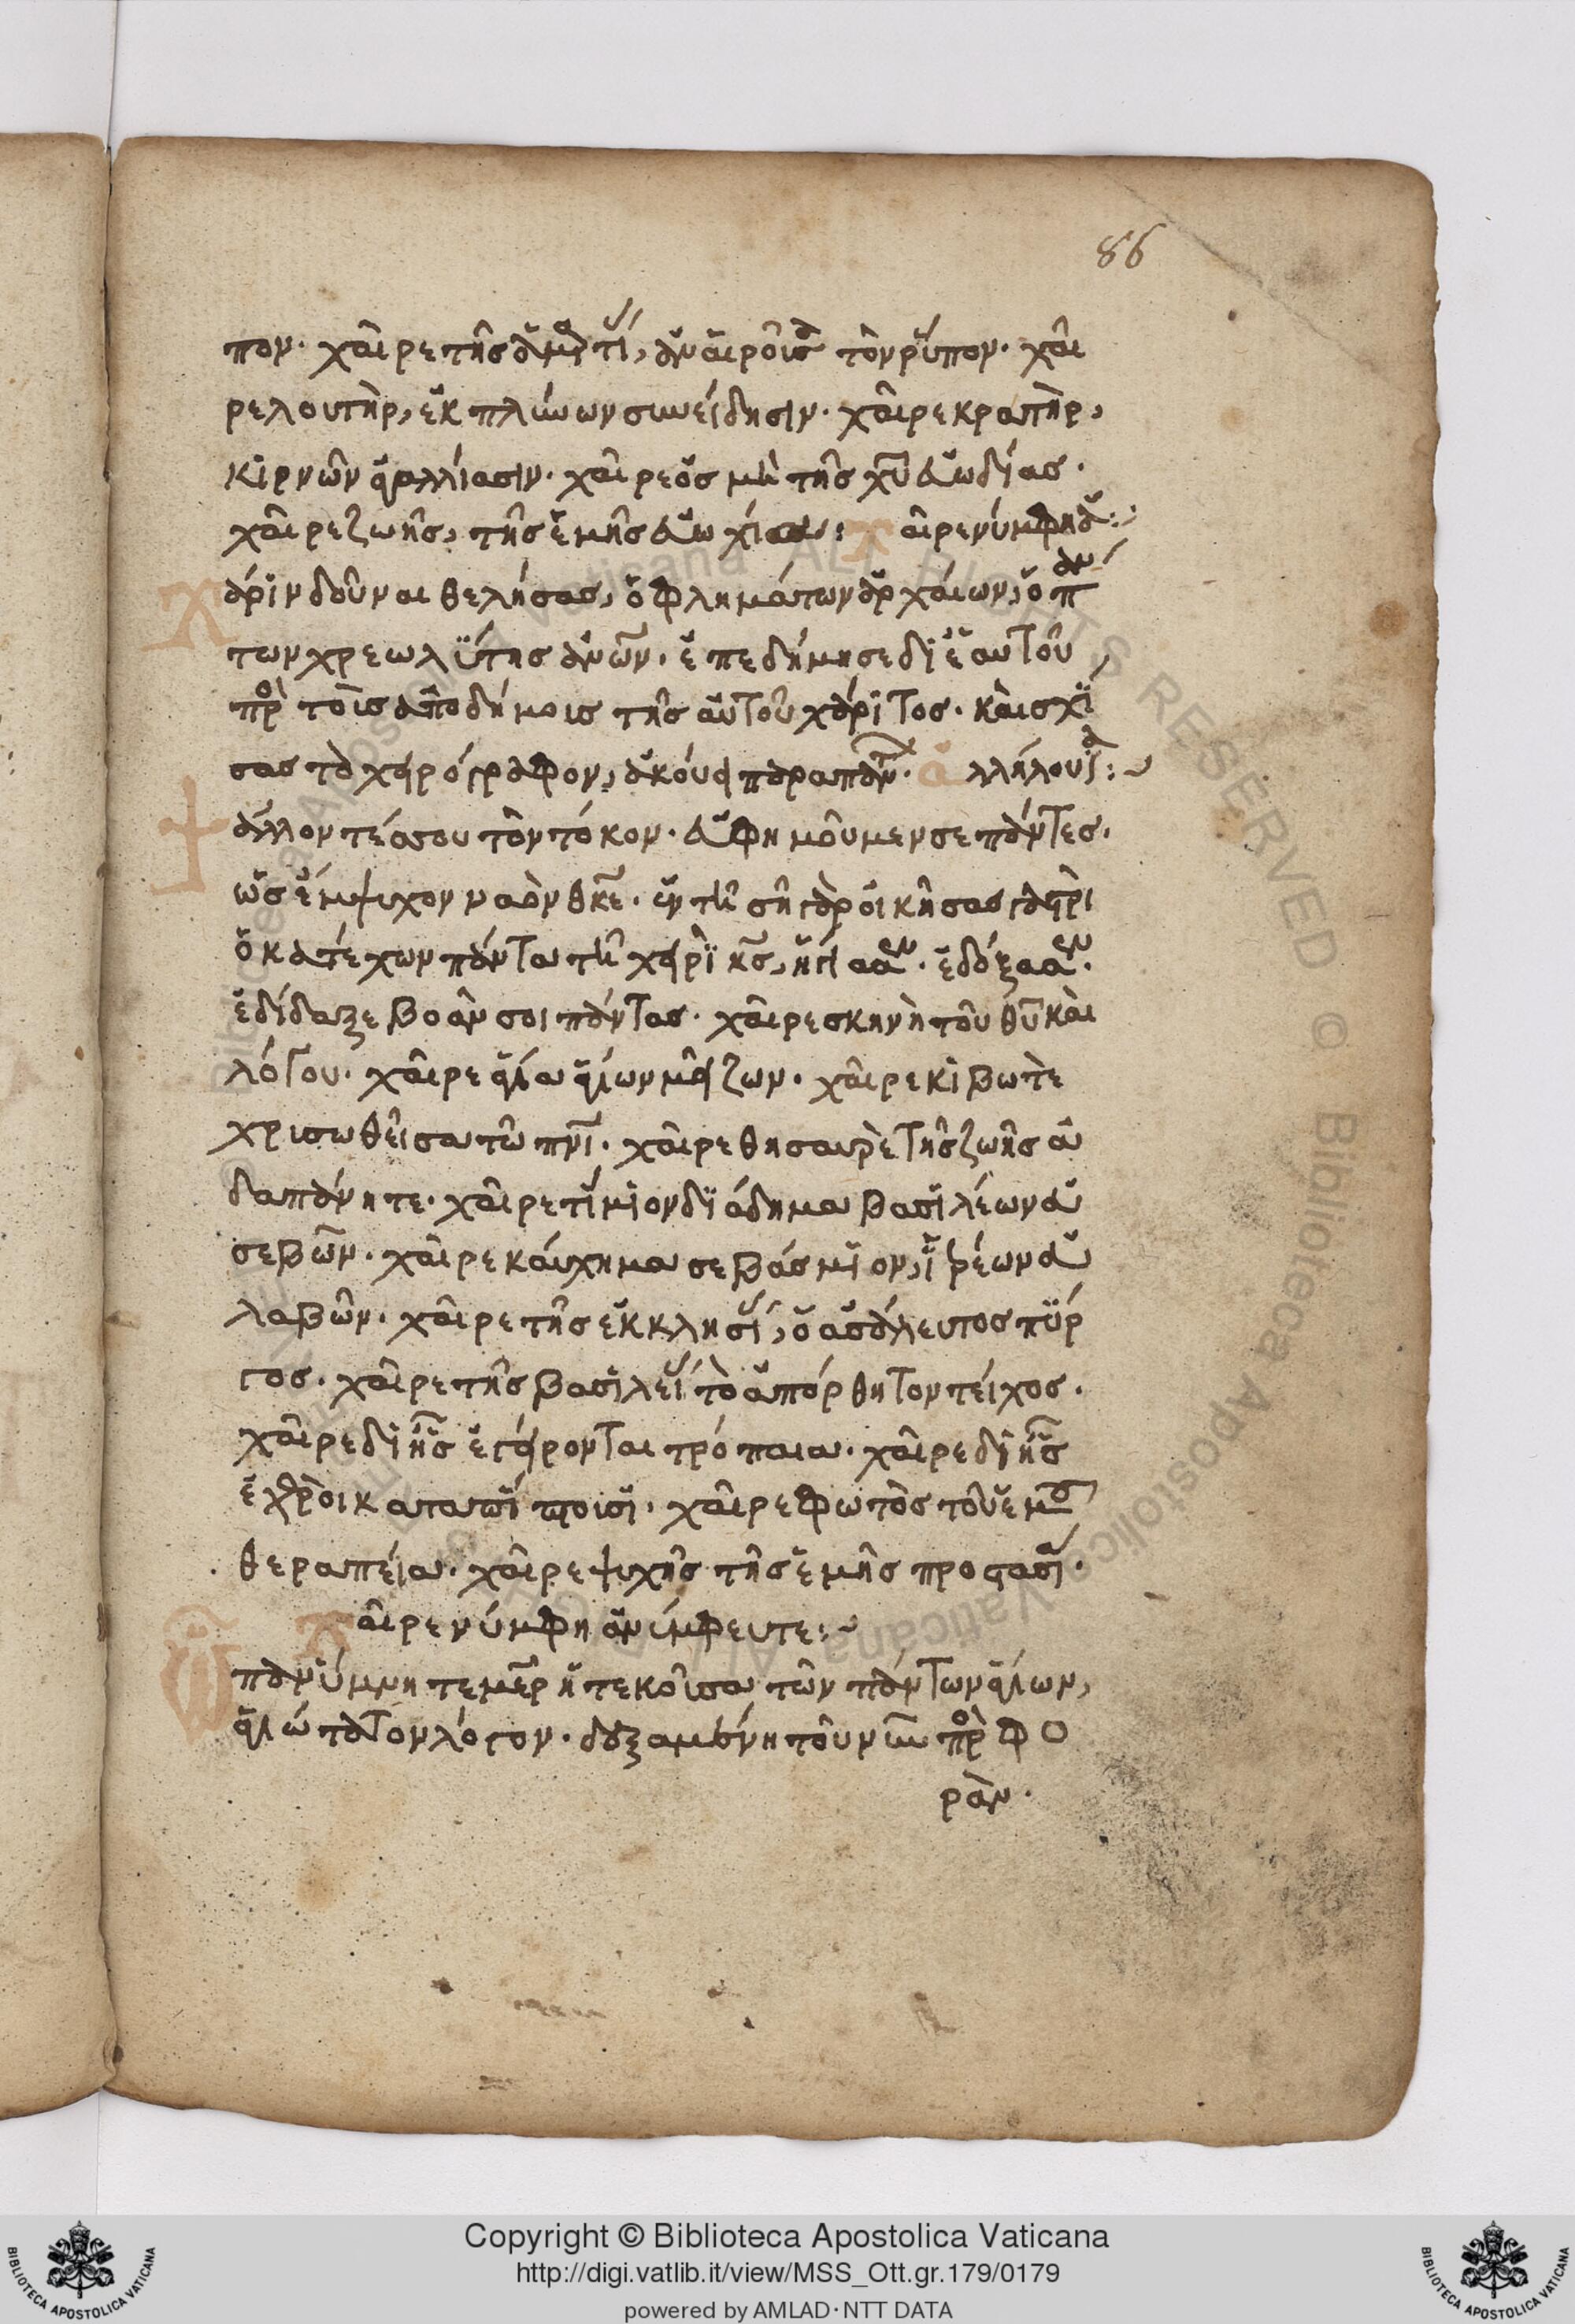 86
πον· χαῖρε τῆς ἁμαρτίας, ἀναιροῦσα τὸν ῥύπον· χαῖ
ρε λουτὴρ, ἐκπλύνων συνείδησιν· χαῖρε κρατὴρ,
κιρνῶν ἀγαλλίασιν· χαῖρε ὀσμὴ τῆς χυ εὐωδίας·
χαῖρε ζωῆς, τῆς ἐμῆς εὐωχίας: χαῖρε νύμφη ἀ:
χάριν δοῦναι θελήσας, ὀφλημάτων ἀρχαίων, ὁ πάν
των χρεωλύτης ἀνων· ἐπεδήμησε δι ἑαυτοῦ
πρὸς τοῖς ἀποδήμοις τῆς αὐτοῦ χάριτος· καὶ σχί
σας τὸ χειρόγραφον, ἀκούει παρὰ πάντων· ἀλληλούϊα:
ψάλλοντές σου τὸν τόκον· εὐφημοῦμεν σε πάντες·
ὡς ἔμψυχον ναὸν θκε· ἐν τῇ σῇ γὰρ οἰκήσας γαστρὶ
ὁ κατέχων πάντα τῇ χειρὶ κς, ἡγίασεν· ἐδόξασεν·
ἐδίδαξε βοᾶν σοι πάντας· χαῖρε σκηνὴ τοῦ θυ καὶ
λόγου· χαῖρε ἁγία ἁγίων μείζων· χαῖρε κιβωτὲ
χρισωθεῖσα τῷ πνι· χαῖρε θησαυρὲ τῆς ζωῆς ἀ
δαπάνητε· χαῖρε τίμιον διάδημα βασιλέων εὐ
σεβῶν· χαῖρε καύχημα σεβάσμιον, ἱερέων εὐ
λαβῶν· χαῖρε τῆς ἐκκλησίας, ὁ ἀσάλευτος πύρ
γος· χαῖρε τῆς βασιλείας τὸ ἀπόρθητον τεῖχος·
χαῖρε δι ἧς ἐγείρονται τρόπαια· χαῖρε δι ἧς
ἐχθροὶ καταπίπτοισι· χαῖρε φωτὸς τοῦ ἐμοῦ
θεραπεία· χαῖρε ψυχῆς τῆς ἐμῆς προστασία·
χαῖρε νύμφη ἀνύμφευτε:
ὦ πανύμνητε μερ ἡ τεκοῦσα τῶν πάντων ἁγίων,
ἁγιώτατον λόγον· δεξαμένη τοῦ νῦν προσφο
ρὰν·
Copyright © Biblioteca Apostolica Vaticana
http://digi.vatlib.it/view/MSS_Ott.gr.179/0179
powered by AMLAD·NTT DATA